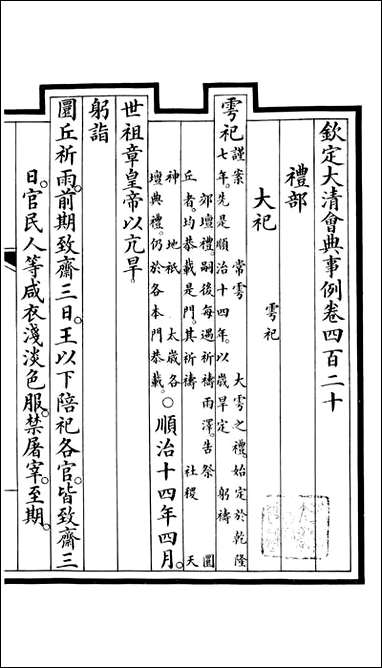 欽定大清會典事例卷四百二十
禮部
大祀 雩祀
雩祀 謹案 常雩 大雩之禮始定於乾隆
七年。先是順治十四年。以歲旱定 躬禱
郊壇禮。嗣後每遇祈禱雨澤。告祭 圜
丘者。均恭載是門。其祈禱 社稷 天
神 地祇 太歲各
壇典禮。仍於各本門恭載。○順治十四年四月。
世祖章皇帝以亢旱。
躬詣
圜丘祈雨。前期致齋三日。王以下陪祀各官。皆致齋三
日。官民人等咸衣淺淡色服。禁屠宰。至期。